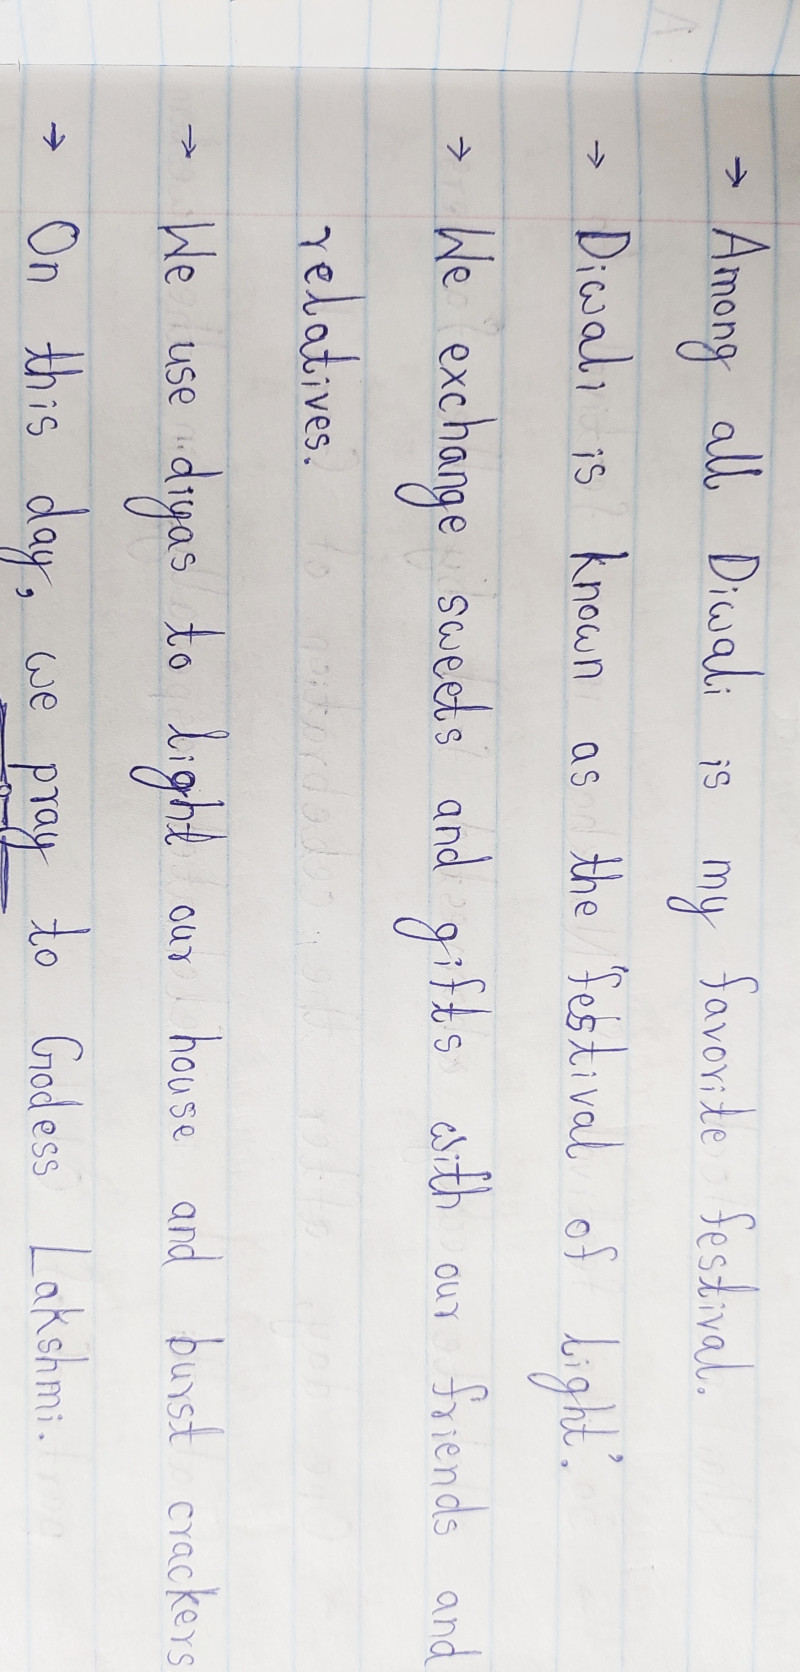 → Among all Diwali is my favorite festival.
→ Diwali is known as the "festival of light".
→ We exchange sweets and gifts with our friends and
relatives.
→ We use diyas to light our house and burst crackers
→ On this day, we pray to Godess Lakshmi.